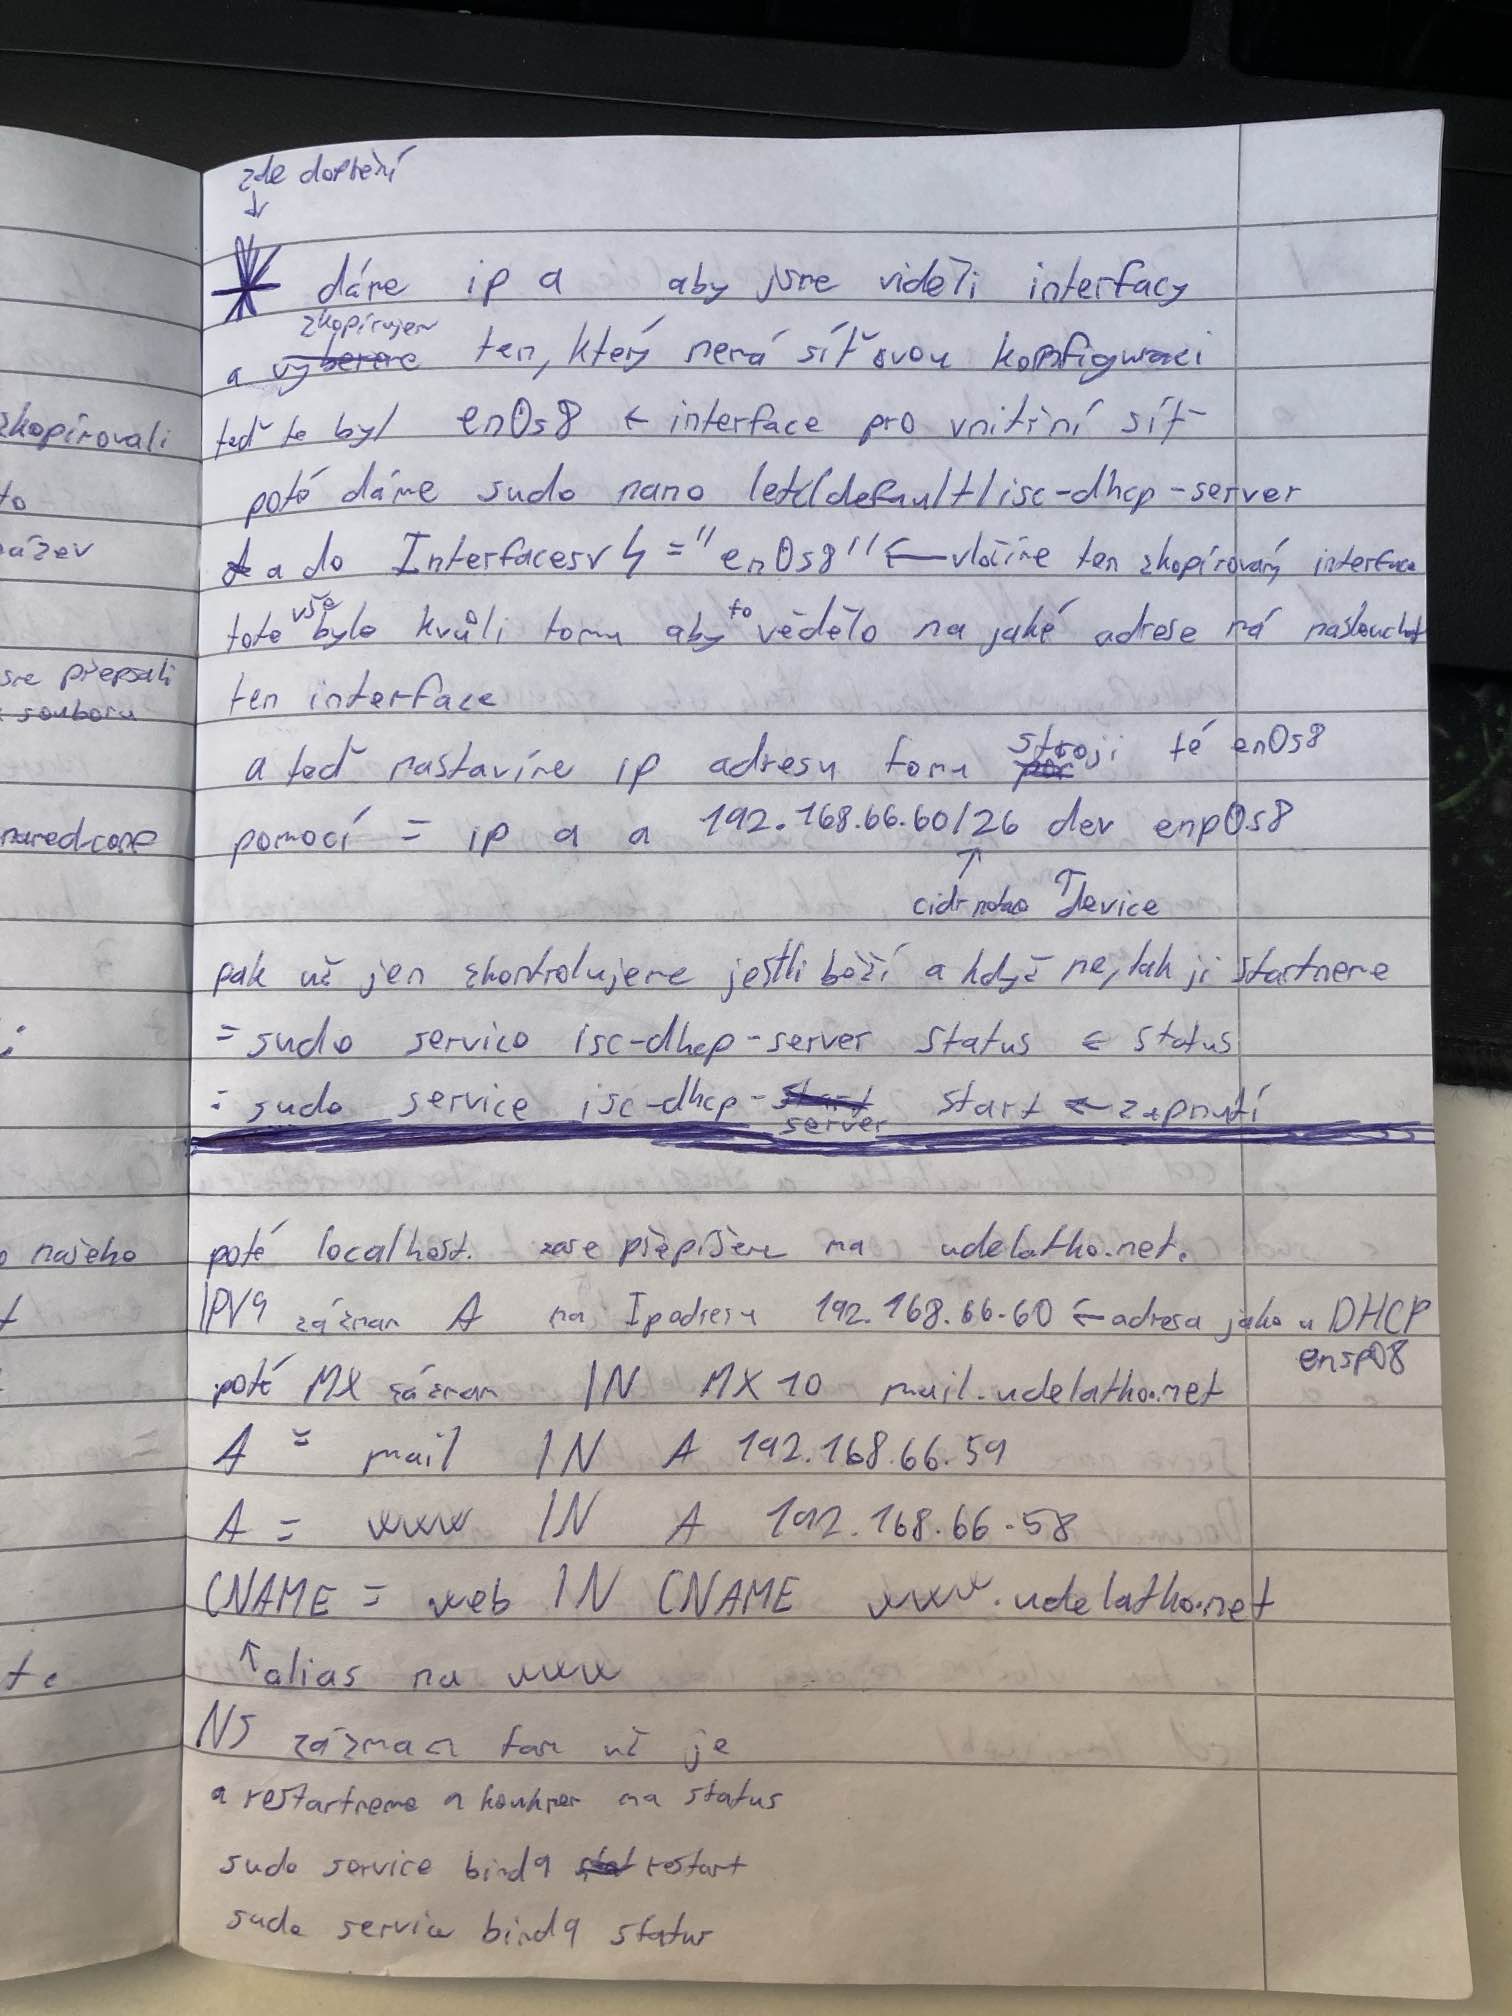 zde doplnění
dáme ip a aby jsme viděli interfacy
zkopírujem
a vybereme ten, který nemá síťovou konfiguraci
teď to byl en0s8 ← interface pro vnitřní síť
poté dáme sudo nano /etc/default/isc-dhcp-server
a do Interfacesv4 = "en0s8" ← vložíme ten zkopírovaný interface
toto vše bylo kvůli tomu aby to vědělo na jaké adrese má naslouchat
ten interface
a teď nastavíme ip adresu tomu stroji té en0s8
pomocí = ip a a 192.168.66.60/26 dev enp0s8
↑ ↑
cidr device
pak už jen zkontrolujeme jestli běží a když ne, tak ji startneme
= sudo service isc-dhcp-server status ← status
= sudo service isc-dhcp-start start ← zapnutí
server
zkopírovali
to
název
sme přepsali
souboru
named.conf
našeho
poté localhost. zase přepíšem na udelatko.net.
IPV4 záznam A na Ipadresu 192.168.66.60 ← adresa jako u DHCP
ensp08
poté MX záznam IN MX 10 mail.udelatko.net
A = mail IN A 192.168.66.59
A = www IN A 192.168.66.58
CNAME = web IN CNAME www.udelatko.net
↑ alias na www
NS záznam tam už je
a restartneme a kouknem na status
sudo service bind9 restart
sudo service bind9 status